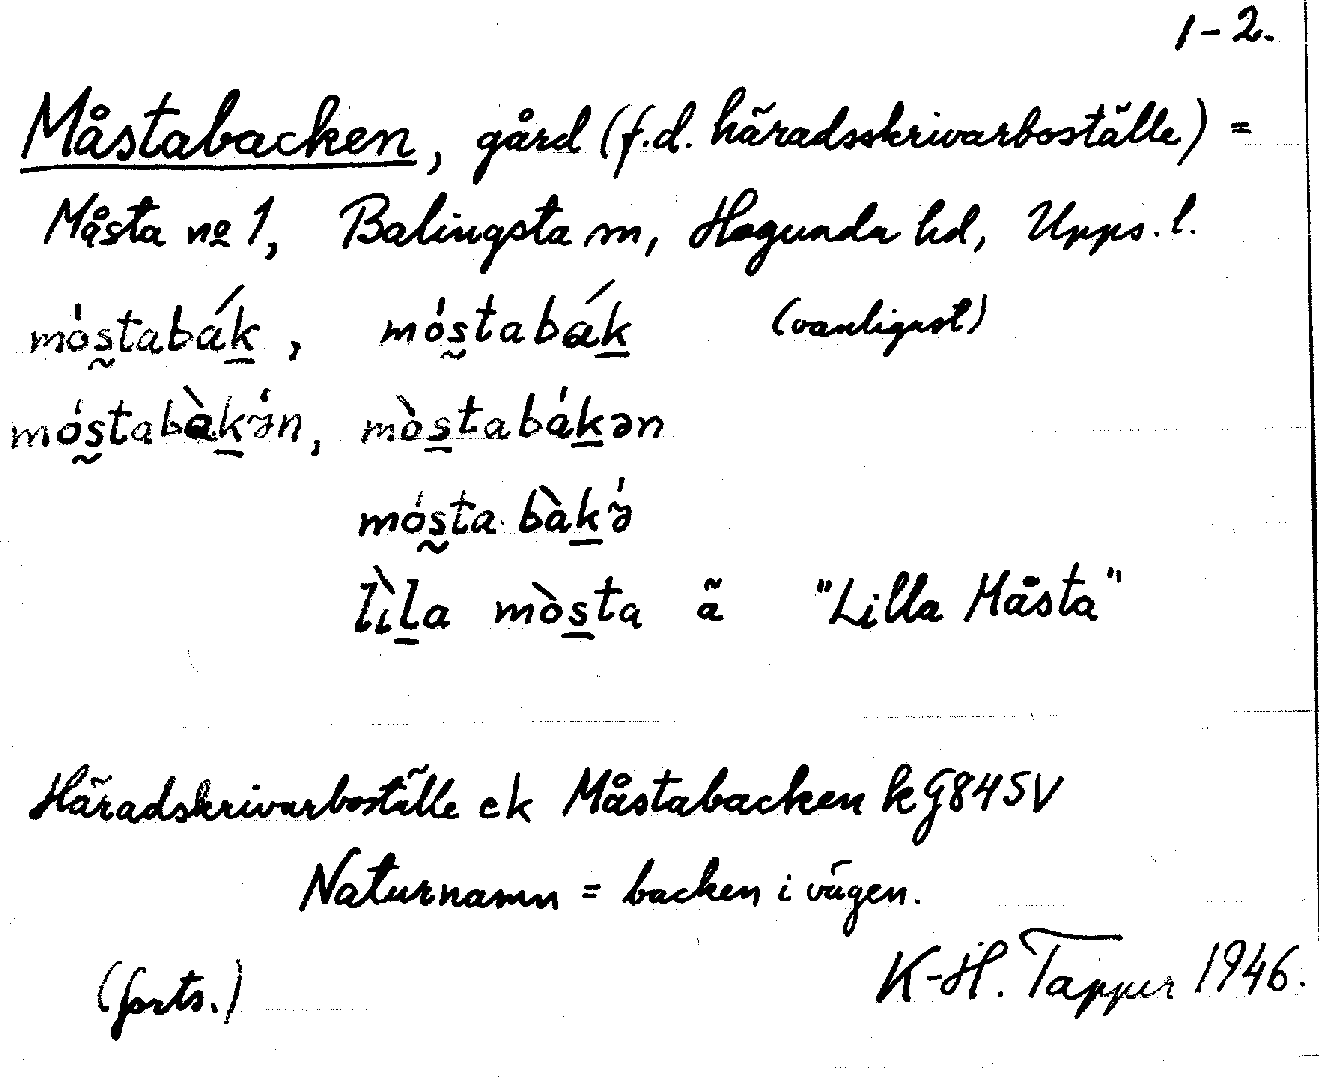 1-2.
Måstabacken, gård (f.d. häradsskrivarboställe) =
Måsta nº 1, Balingsta sn, Hagunda hd, Upps. l.
móstabák, móstabák (vanligast)
móstabàkə́n, mòstabákən
mósta bàkə́
lìla mòsta ä "Lilla Måsta"
Häradskrivarboställe ek Måstabacken kG845V
Naturnamn = backen i vägen.
K-H. Tapper 1946.
(forts.)